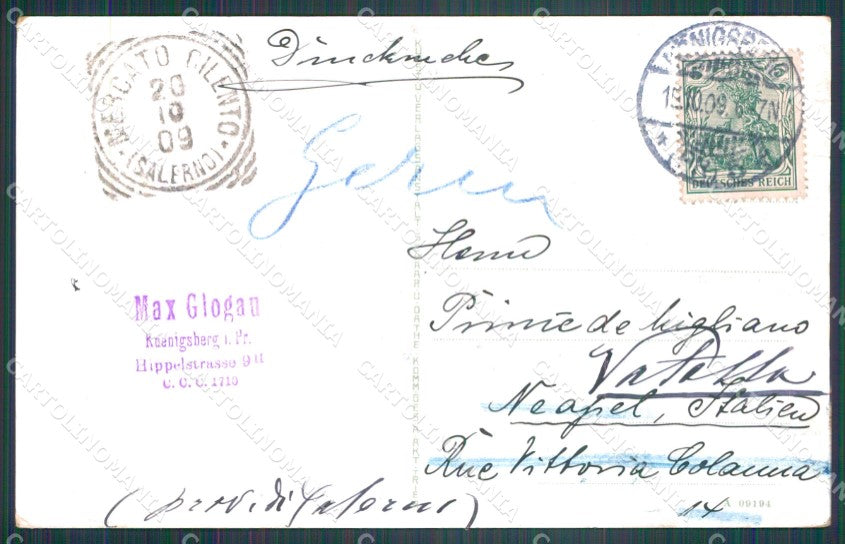 Drucksache
MERCATO CILENTO
20
10
09
(SALERNO)
KOENIGSBERG
19.10.09. 6-7N
DEUTSCHES REICH
Herrn
Prince de Migliano
Vatolla
Neapel, Italien
Rue Vittoria Colonna
14
Max Glogau
Koenigsberg i. Pr.
Hippelstrasse 9 II
C. C. C. 1710
(prov. di Salerno)
09194
CARTOLINOMANIA